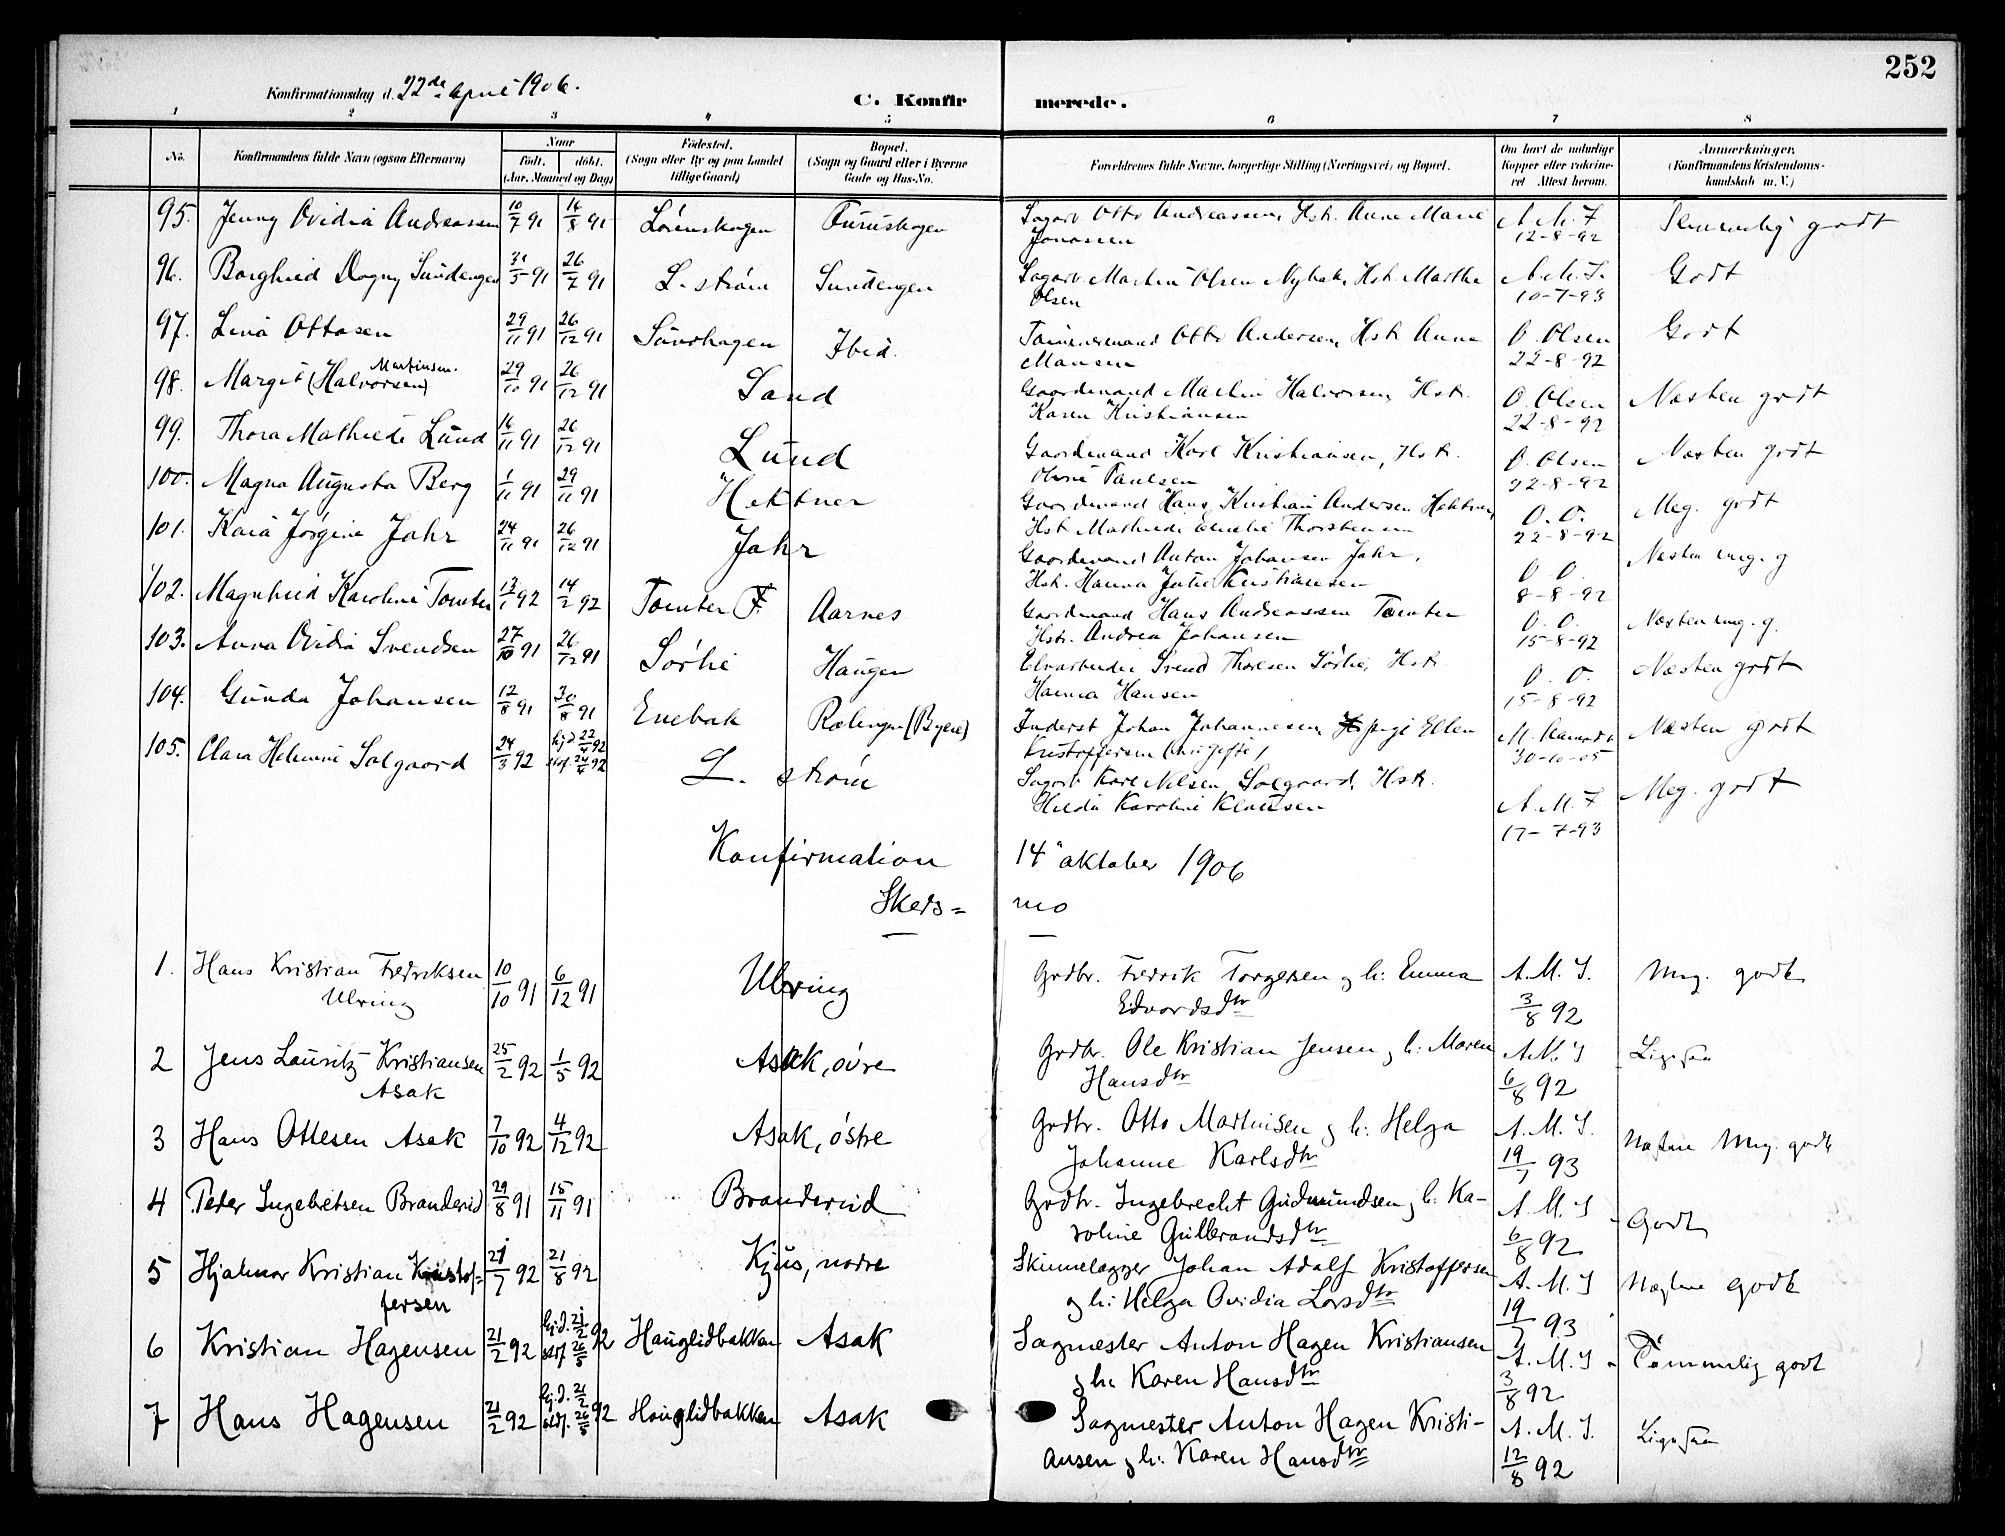 252
Konfirmationsdag d. 22de april 1906.
C. Konfirmerede.
1 2 3 4 5 6 7 8
No. Konfirmandens fulde Navn (ogsaa Efternavn) Naar født. døbt. (Aar, Maaned og Dag) Fødested. (Sogn eller By og paa Landet tillige Gaard) Bopæl. (Sogn og Gaard eller i Byerne Gade og Hus-No. Forældrenes fulde Navne, borgerlige Stilling (Næringsvei) og Bopæl. Om havt de naturlige Kopper eller vakcineret Attest herom. Anmærkninger. (Konfirmandens Kristendomskundskab m. V.)
95. Jenny Ovidia Andreassen 10/7 91 16/8 91 Lørenskogen Furuskogen Sagarb Otto Andreassen, Hst. Anne Marie Jonassen A. M. F 12-8-92 Temmelig godt
96. Borghild Dagny Sundengen 31/5 91 26/7 91 L. strøm Sundengen Sagarb Martin Olsen Nybak, Hst. Marthe Olsen A. M. F. 10-7-93 Godt
97. Lina Ottosen 29/11 91 26/12 91 Ibid. Otto Andersen, Hst. Anne O. Olsen 22-8-92 Godt
98. Margit (Halvorsen) Martinsen. 29/10 91 26/12 91 Sand Gaardmand Martin Halvorsen, Hst. Karen Kristiansen O. Olsen 22-8-92 Næsten godt
99. Thora Mathilde Lund 16/11 91 26/12 91 Lund Gaardmand Karl Kristiansen, Hst. Paulsen O. Olsen 22-8-92 Næsten godt
100. Magna Augusta Berg 1/11 91 29/11 91 Hektner Gaardmand Hans Kristian Andersen Hektner, Hst. Mathilde Emelie Thorstensen O. O. 22-8-92 Meg. godt
101. Kaia Jørgine Jahr 24/11 91 26/12 91 Jahr Gaardmand Anton Johansen Jahr, Hst. Hanna Julie Kristiansen O O. 8-8-92 Næsten mg. g
102. Magnhild Karoline Tomter 13/1 92 14/2 92 Tomter F. Aarnes Gaardmand Hans Andreassen Tomter Hst. Andrea Johansen O. O. 15-8-92 Næsten mg. g.
103. Anna Ovidia Svendsen 27/10 91 26/12 91 Sørlie Haugen Elvarbeider Svend Thoresen Sørlie, Hst. Hanna Hansen O. O. 15-8-92 Næsten godt
104. Gunda Johansen 12/8 91 30/8 91 Enebak Rælingen (Byere) Inderst Johan Johannesen, pige Ellen Kristoffersen (Nu gifte) 30-10-05 Næsten godt
105. Clara Helmine Solgaard 24/3 92 hjd 22/4 92 stdf. 24/4 92 L. strøm Sagarb Karl Nilsen Solgaard, Hst. Hilda Karoline Klausen A. M. F 17-7-93 Meg. godt
Konfirmation 14de oktober 1906
Skeds=mo
1. Hans Kristian Fredriksen Ulvring 10/10 91 6/12 91 Ulvring Grdbr. Fredrik Torgersen og h: Emma Edvardsdtr A. M. S. 3/8 92 Meg. godt
2 Jens Lauritz Kristiansen Asak 25/2 92 1/5 92 Asak, øvre Grdbr. Ole Kristian Jensen og h: Maren Hansdtr A. M. S 6/8 92 Ligesaa
3 Hans Ottesen Asak 7/10 92 4/12 92 Asak, østre Grdbr. Otto Martinsen og h: Helga Johanne Karlsdtr A. M. S. 19/7 93 Næsten Meg. godt
4 Peter Ingebretsen Branderud 29/8 91 15/11 91 Branderud Grdbr. Ingebrecht Gudmundsen og h: Karoline Gulbrandsdtr A. M. S 6/8 92 Godt
5 Hjalmar Kristian Kristoffersen 21/7 92 21/8 92 Kjus, nordre Skinnelægger Johan Adolf Kristoffersen og h: Helga Ovidia Larsdtr A. M. S 19/7 93 Næsten godt
6 Kristian Hagensen 21/2 92 hj.d. 21/2 92 stdf. 26/5 Hauglidbakken Asak Sagmester Anton Hagen Kristiansen og h: Karen Hansdtr A. M. S 3/8 92 Temmelig godt
7 Hans Hagensen 21/2 92 hj.d. 21/2 92 stdf. 26/5 Hauglidbakken Asak Sagmester Anton Hagen Kristiansen og h: Karen Hansdtr A. M. S. 12/8 92 Ligesaa